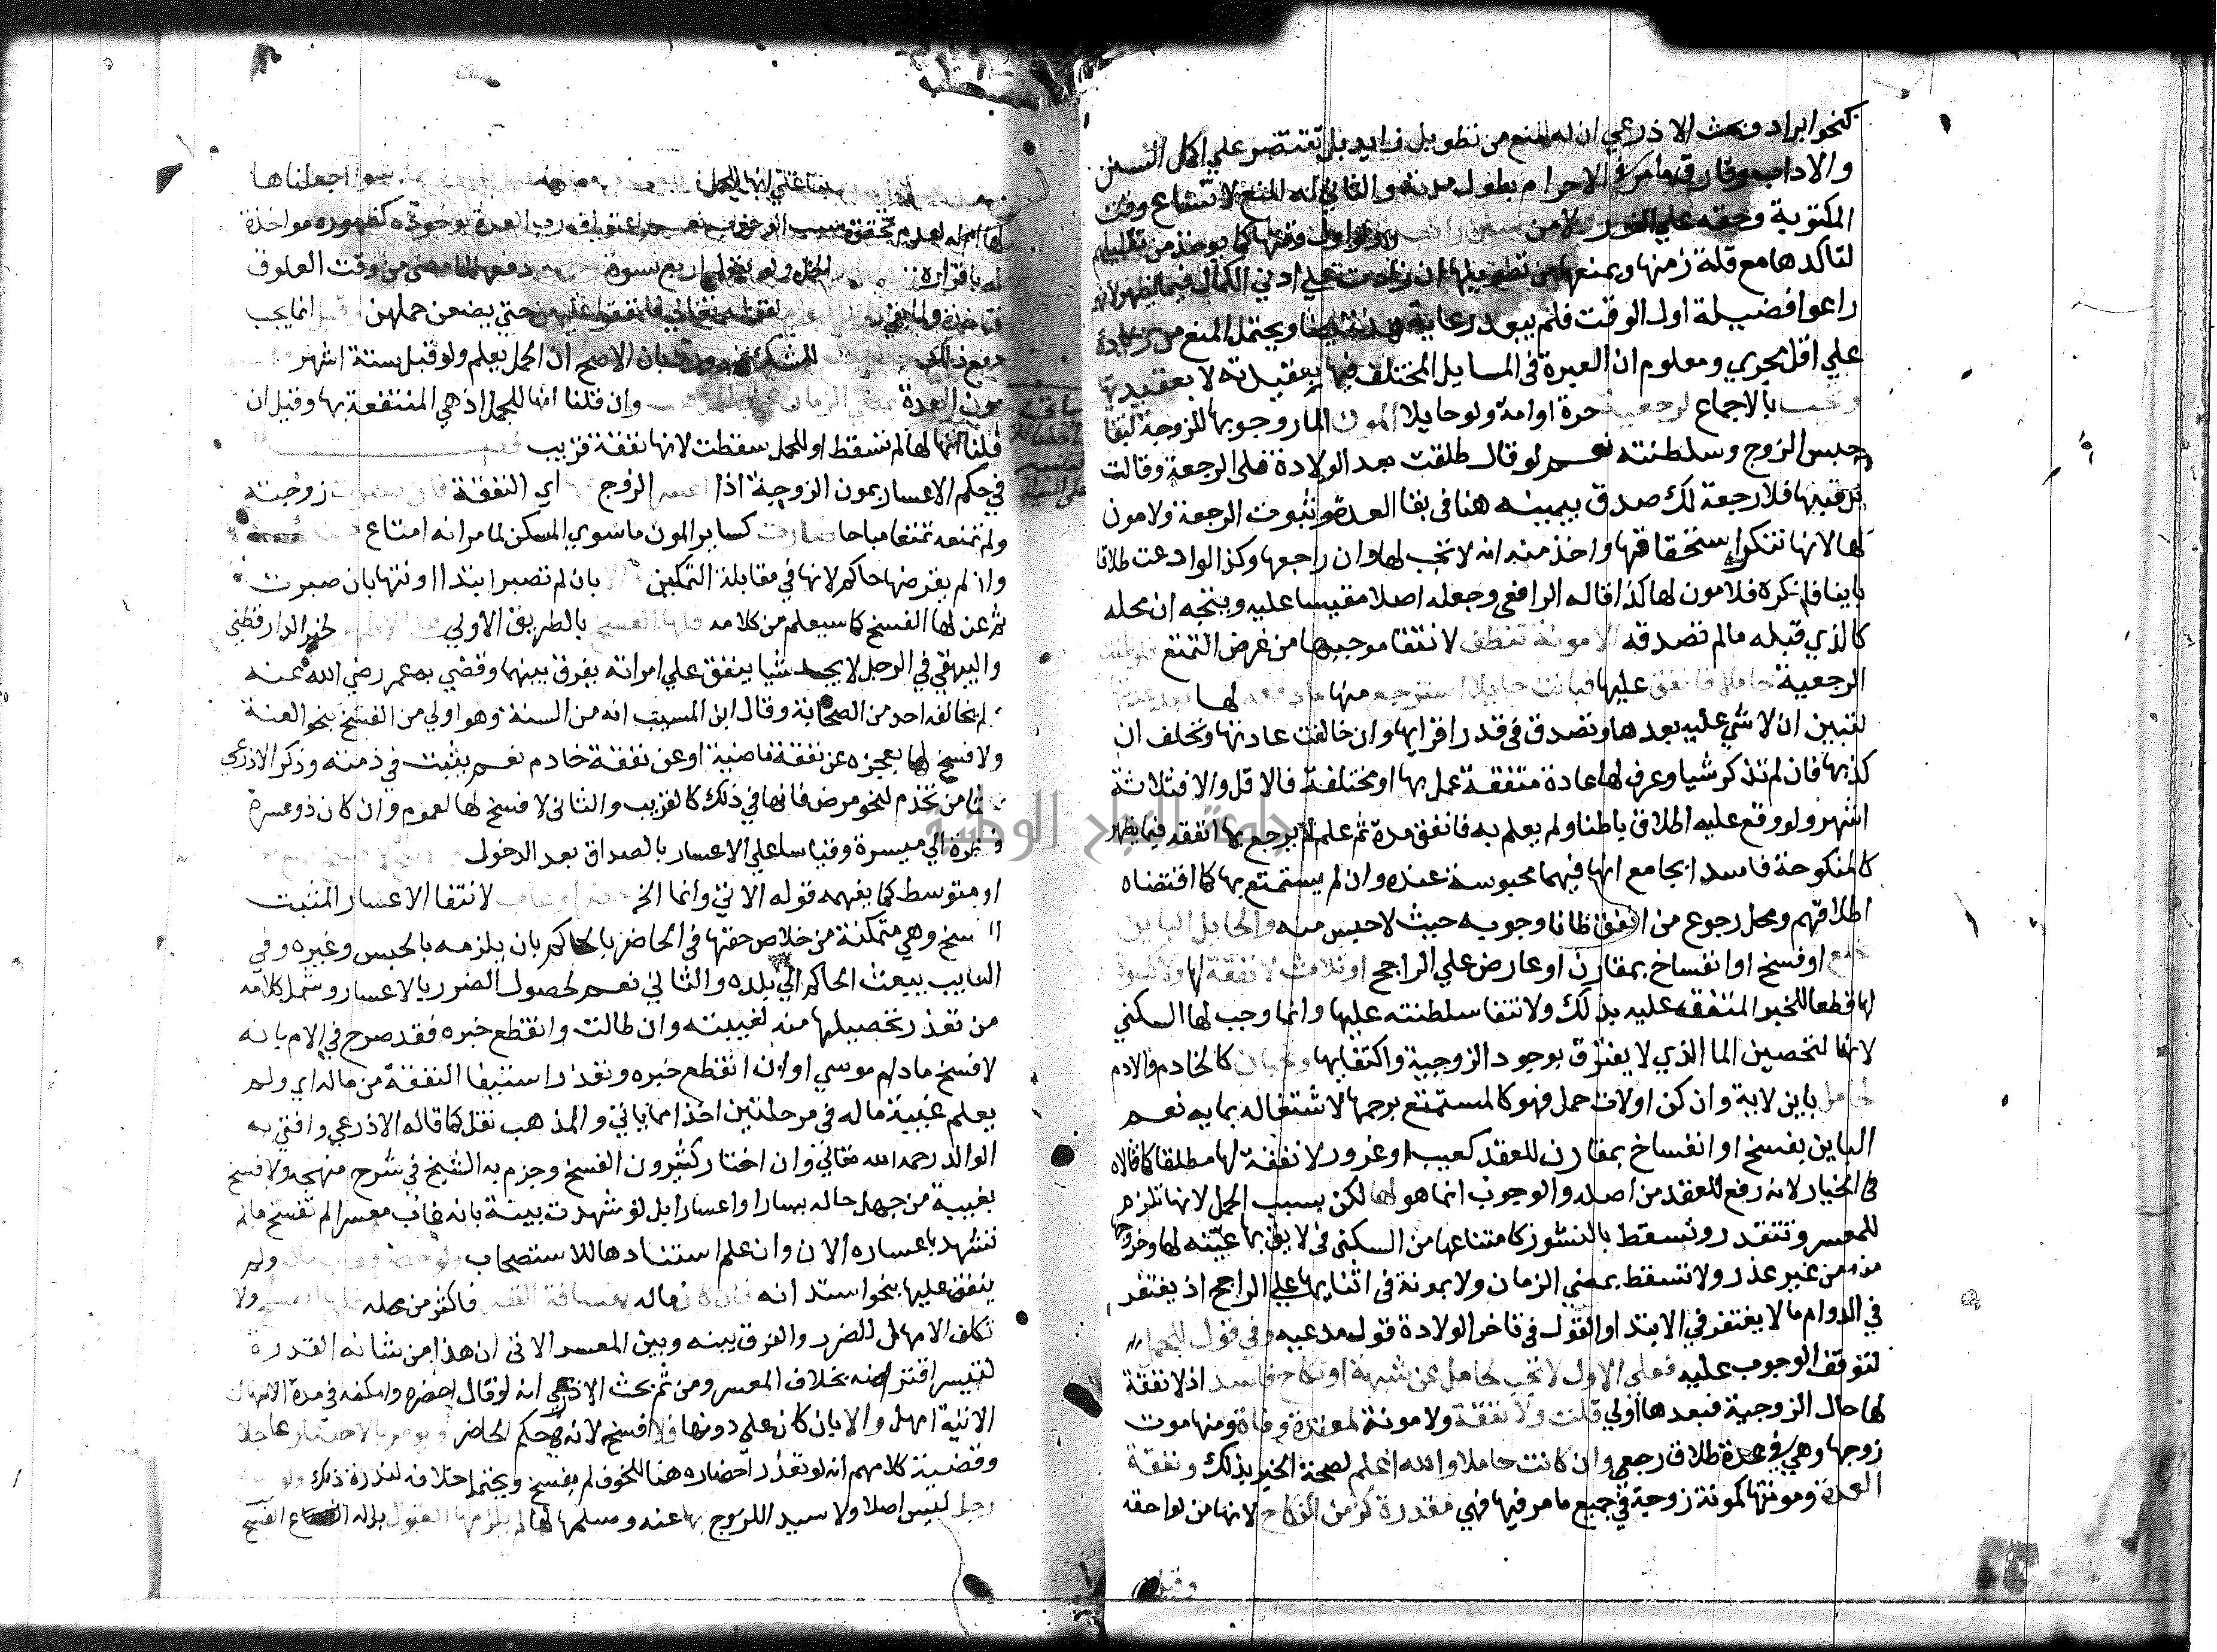 كنحو ابراد وبحث الاذرعي ان له المنع من تطويل زايد بل تقتصر علي اكمل السنن
والاداب وفارق ما مر في الاحرام بطول مدته والثاني له المنع لاتساع وقت
المكتوبة وحقه علي الفور لا من سنن راتبة ولو اول وقتها كما يوخذ من تعليلهم
لتاكدها مع قلة زمنها ويمنعها من تطويلها ان زادت علي ادني الكمال فيما يظهر لانهم
راعوا فضيلة اول الوقت فلم يبعد رعاية هذه ايضا ويحتمل المنع من زيادة
علي اقل مجزي ومعلوم ان العبرة في المسايل المختلف فيها بعقيدته لا بعقيدتها
وتجب بالاجماع لرجعية حرة او امة ولو حايلا المون المار وجوبها للزوجة لبقا
حبس الزوج وسلطنته نعم لو قال طلقت بعد الولادة فلي الرجعة وقالت
بل قبلها فلا رجعة لك صدق بيمينه هنا في بقا العدة وثبوت الرجعة ولا مون
لها لانها تنكر استحقاقها واخذ منه انه لا تجب لها وان راجعها وكذا لو ادعت طلاقا
باينا فانكره فلا مون لها كذا قاله الرافعي وجعله اصلا مقيسا عليه ويتجه ان محله
كالذي قبله ما لم تصدقه الا مونة تنظف لانتفا موجبها من غرض التمتع
الرجعية حاملا فانفق عليها فبانت حايلا استرجع منها ما دفعه لها
لتبين ان لا شي عليه بعدها وتصدق في قدر اقرايها وان خالفت عادتها وتحلف ان
كذبها فان لم تذكر شيا وعرف لها عادة متفقة عمل بها او مختلفة فالاقل والا فثلاثة
اشهر ولو وقع عليه طلاق باطنا ولم يعلم به فانفق مدة ثم علم لم يرجع بما انفقه فيما يظهر
كالمنكوحة فاسدا بجامع انها فيهما محبوسة عنده وان لم يستمتع بها كما اقتضاه
اطلاقهم ومحل رجوع من انفق ظانا وجوبه حيث لا حبس منه والحايل الباين
بخلع او فسخ او انفساخ بمقارن او عارض علي الراجح او ثلاث لا نفقة لها ولا كسوة
لها قطعا للخبر المتفق عليه بذلك ولانتفا سلطنته عليها وانما وجب لها السكني
لانها لتحصين الما الذي لا يفترق بوجود الزوجية واكتفايها وتجبان كالخادم والادم
لحامل باين لاية وان كن اولات حمل فهو كالمستمتع برحمها لاشتغاله بمايه نعم
الباين بفسخ او انفساخ بمقارن للعقد كعيب او غرور لا نفقة لها مطلقا كما قالاه
في الخيار لانه رفع للعقد من اصله والوجوب انما هو لها لكن بسبب الحمل لانها تلزم
للمعسر وتتقدر وتسقط بالنشوز كامتناعها من السكني في لايق بها عينه لها وخروجها
منه من غير عذر ولا تسقط بمضي الزمان ولا بمونة في اثنايها علي الراجح اذ يغتفر
في الدوام ما لا يغتفر في الابتدا والقول في تاخر الولادة قول مدعيه وفي قول للحمل
لتوقف الوجوب عليه فعلي الاول لا تجب لحامل عن شبهة او نكاح فاسد اذ لا نفقة
لها حال الزوجية فبعدها اولي قلت ولا نفقة ولا مونة لمعتدة وفاة ومنها موت
زوجها وهي في عدة طلاق رجعي وان كانت حاملا والله اعلم لصحة الخبر بذلك ونفقة
العدة ومونتها كمونة زوجية في جميع ما مر فيها فهي مقدرة كزمن النكاح لانها من لواحقه
وقيل
بنا علي انها للحمل سوا جعلناها
لها ام له لعدم تحققه
له باقراره
حتي يضعن حملهن انما يجب
دفع ذلك للشك فيه ورد بان الاصح ان الحمل يعلم ولو قبل ستة اشهر
مون العدة بمضي الزمان وان قلنا انها للحمل اذ هي المنتفعة بها وقيل ان
قلنا انها لها لم تسقط او للحمل سقطت لانها نفقة قريب
في حكم الاعسار بمون الزوجة اذا اعسر الزوج بها اي النفقة فان صبرت زوجته
ولم تمنعه تمتعا مباحا صارت كساير المون ما سوي المسكن لما مر انه امتاع
وان لم يفرضها حاكم لانها في مقابلة التمكين والا بان لم تصبر ابتدا او انتها بان صبرت
ثم عن لها الفسخ كما سيعلم من كلامه فلها الفسخ بالطريق الاولي علي الاظهر لخبر الدارقطني
والبيهقي في الرجل لا يجد شيا ينفق علي امراته يفرق بينهما وقضي به عمر رضي الله عنه
ولم يخالفه احد من الصحابة وقال ابن المسيب انه من السنة وهو اولي من الفسخ بنحو العنة
ولا فسخ لها بعجزه عن نفقة ماضية او عن نفقة خادم نعم يثبت في ذمته وذكر الاذرعي
بحثا من تخدم لنحو مرض فانها في ذلك كالقريب والثاني لا فسخ لها لعموم وان كان ذو عسرة
فنظرة الي ميسرة وقياسا علي الاعسار بالصداق بعد الدخول
او متوسط كما يفهمه قوله الاتي وانما الخ حضر او غاب لانتفا الاعسار المثبت
للفسخ وهي متمكنة من خلاص حقها في الحاضر بالحاكم بان يلزمه بالحبس وغيره وفي
الغايب يبعث الحاكم الي بلده والثاني نعم لحصول الضرر بالاعسار وشمل كلامه
من تعذر تحصيلها منه لغيبته وان طالت وانقطع خبره فقد صرح في الام بانه
لا فسخ ما دام موسرا وان انقطع خبره وتعذر استيفا النفقة من ماله اي ولم
يعلم غيبة ماله في مرحلتين اخذا مما ياتي والمذهب نقل كما قاله الاذرعي وافتي به
الوالد رحمه الله تعالي وان اختار كثيرون الفسخ وجزم به الشيخ في شرح منهجه ولا فسخ
بغيبة من جهل حاله يسارا واعسارا بل لو شهدت بينة بانه غاب معسرا لم تفسخ ما لم
تشهد باعساره الان وان علم استنادها للاستصحاب ولو حضر وغاب ماله ولم
ينفق عليها بنحو استدانه فان كان ماله بمسافة القصر فاكثر من محله فلها الفسخ ولا
تكلف الامهال للضرر والفرق بينه وبين المعسر الاتي ان هذا من شانه القدرة
لتيسر اقتراضه بخلاف المعسر ومن ثم بحث الاذرعي انه لو قال احضره وامكنه في مدة الامهال
الاتية امهل والا بان كان علي دونها فلا فسخ لانه في حكم الحاضر ويومر بالاحضار عاجلا
وقضية كلامهم انه لو تعذر احضاره هنا للخوف لم يفسخ ويحتمل خلافه لندرة ذلك ولو تبرع
رجل ليس اصلا ولا سيد اللزوج بها عنه وسلمها لها لم يلزمها القبول بل له الفسخ